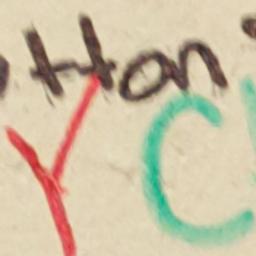 tton
Y C